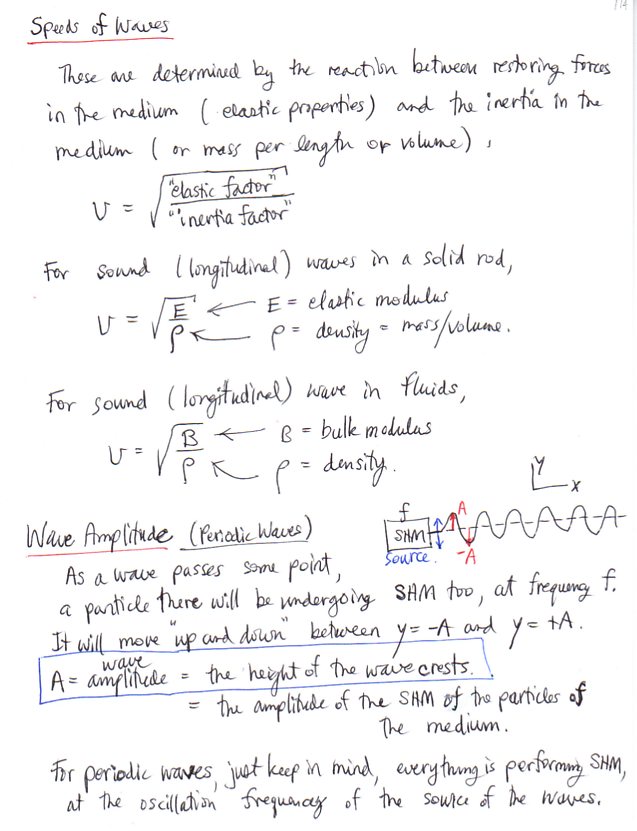 Speeds of Waves
These are determined by the reaction between restoring forces
in the medium (elastic properties) and the inertia in the
medium (or mass per length or volume),
v = √("elastic factor" / "inertia factor")
For sound (longitudinal) waves in a solid rod,
v = √(E/ρ) ← E = elastic modulus
← ρ = density = mass/volume.
For sound (longitudinal) wave in fluids,
v = √(B/ρ) ← B = bulk modulus
← ρ = density.
Wave Amplitude (Periodic Waves)
f SHM source. A -A y x
As a wave passes some point,
a particle there will be undergoing SHM too, at frequency f.
It will move "up and down" between y = -A and y = +A.
A = wave amplitude = the height of the wave crests.
= the amplitude of the SHM of the particles of
the medium.
For periodic waves, just keep in mind, everything is performing SHM,
at the oscillation frequency of the source of the waves.